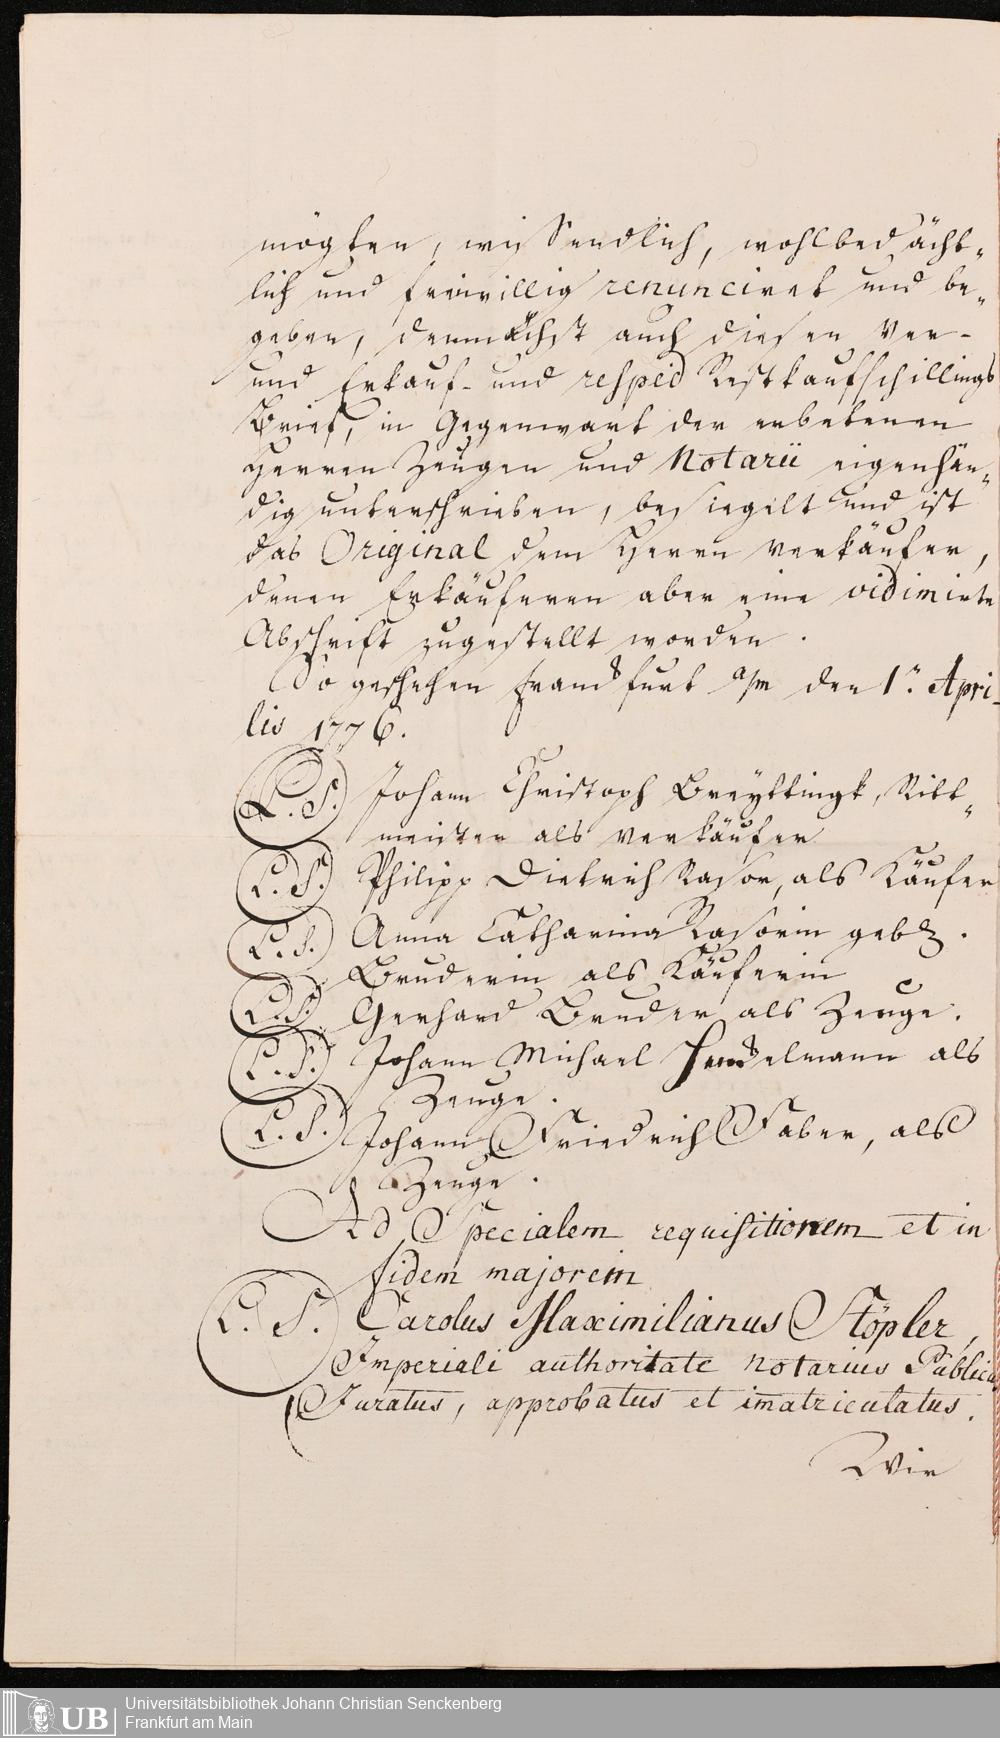 mögten, wissendlich, wohlbedächt-
lich und freiwillig renunciret und be-
geben, demnächst auch diesen Ver-
und Erkauf- und respēc Restkaufschillings
Brief, in Gegenwart der erbetenen
Herren Zeugen und Notarii eigenhän-
dig unterschrieben, besiegelt und ist
das Original dem Herrn Verkäufer,
denen Erkäuferen aber eine vidimirte
Abschrift zugestellt worden.
So geschehen Franckfurt a/m den 1n. Apri-
lis 1776.
L. S. Johann Christoph Breyttingk, Ritt-
meister als Verkäufer
L. S. Philipp Dietrich Rasor, als Käufer
L. S. Anna Catharina Rasorin geb.
Bruderin als Käuferin
L. S. Gerhard Bruder als Zeuge.
L. S. Johann Michael als
Zeuge.
L. S. Johann Friedrich Faber, als
Zeuge.
Ad Specialem requisitionem et in
fidem majorem
L. S. Carolus Maximilianus Stöpler,
Imperiali authoritate Notarius Publicus
Juratus, approbatus et imatriculatus.
Wir
UB Universitätsbibliothek Johann Christian Senckenberg
Frankfurt am Main